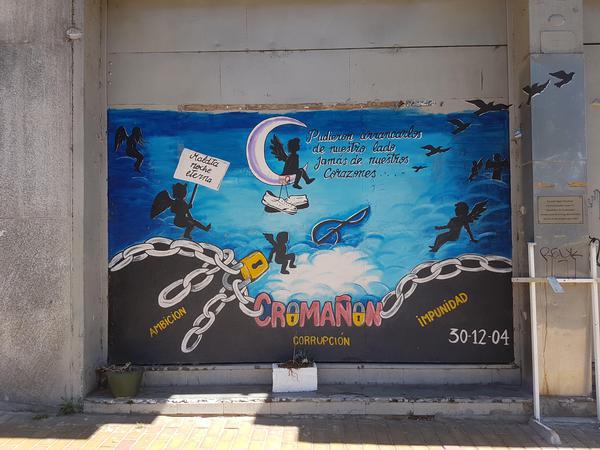 Pudieron arrancarlos
de nuestro lado
jamás de nuestros
Corazones....
Maldita
noche
eterna
CROMAÑON
AMBICION
CORRUPCIÓN
IMPUNIDAD
30-12-04